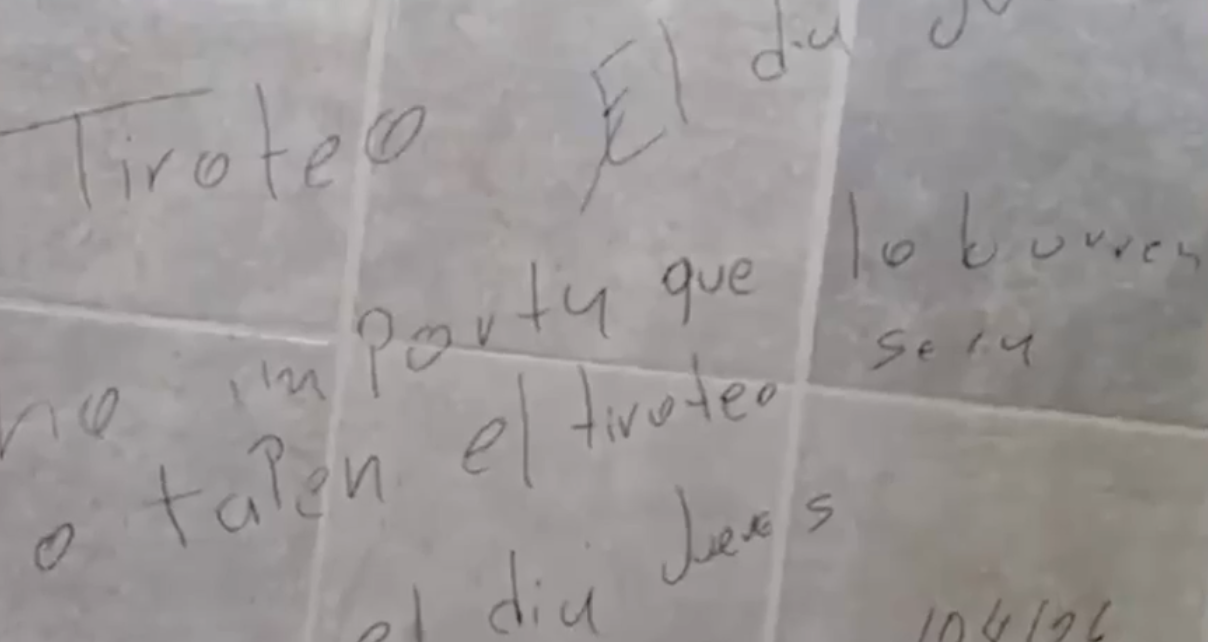 Tiroteo El dia
no importa que lo borren
o tapen el tiroteo sera
el dia Jueves